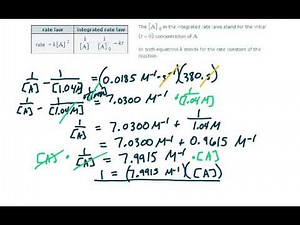 rate law integrated rate law
rate = k[A]² 1/[A] = 1/[A]₀ + kt
The [A]₀ in the integrated rate laws stand for the initial
(t = 0) concentration of A.
In both equations k stands for the rate constant of the
reaction.
1/[A] - 1/[1.04M] = (0.0185 M⁻¹·s⁻¹)(380.s)
1/[A] - 1/[1.04M] = 7.0300 M⁻¹ + 1/[1.04M]
1/[A] = 7.0300 M⁻¹ + 1/1.04M
= 7.0300 M⁻¹ + 0.9615 M⁻¹
[A] · 1/[A] = 7.9915 M⁻¹ · [A]
1 = (7.9915 M⁻¹)([A])